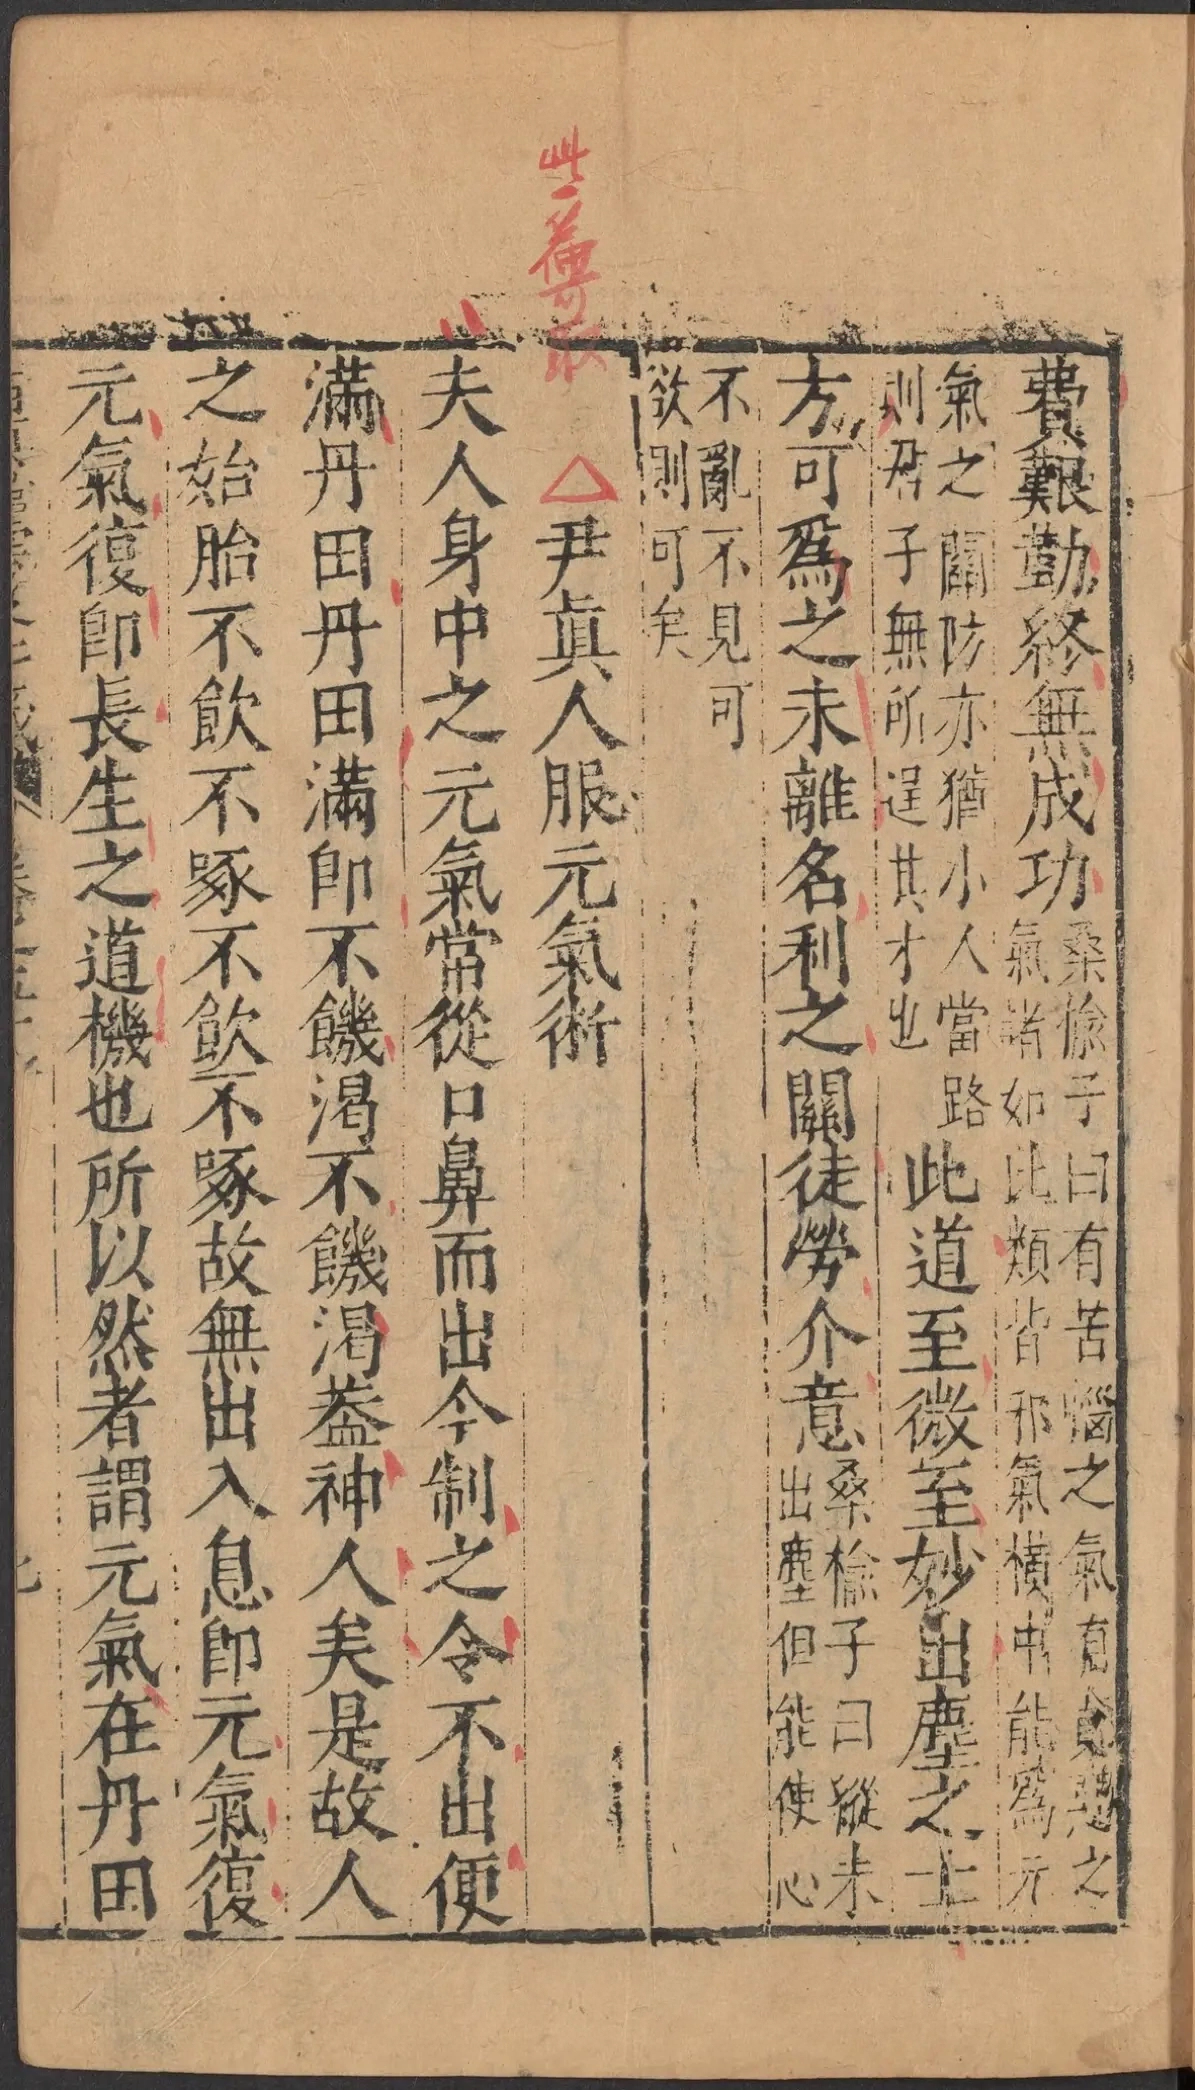 此篇可取
費艱勤終無成功
桑榆子曰有苦惱之氣有之
氣諸如此類皆邪氣橫中能爲元
氣之關防亦猶小人當路
則君子無所逞其才也
此道至微至妙出塵之士
方可爲之未離名利之關徒勞介意
桑榆子曰縱未
出塵但能使心
不亂不見可
欲則可矣
△尹眞人服元氣術
夫人身中之元氣常從口鼻而出今制之令不出便
滿丹田丹田滿卽不饑渴不饑渴葢神人矣是故人
之始胎不飮不啄不飮不啄故無出入息卽元氣復
元氣復卽長生之道機也所以然者謂元氣在丹田